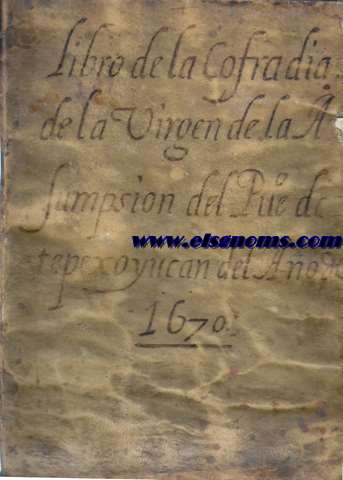 Libro de la Cofradia
de la Virgen de la A
sumpsion del Pue.º de
www.elsenoms.com
tepexoyucan del Año de
1670